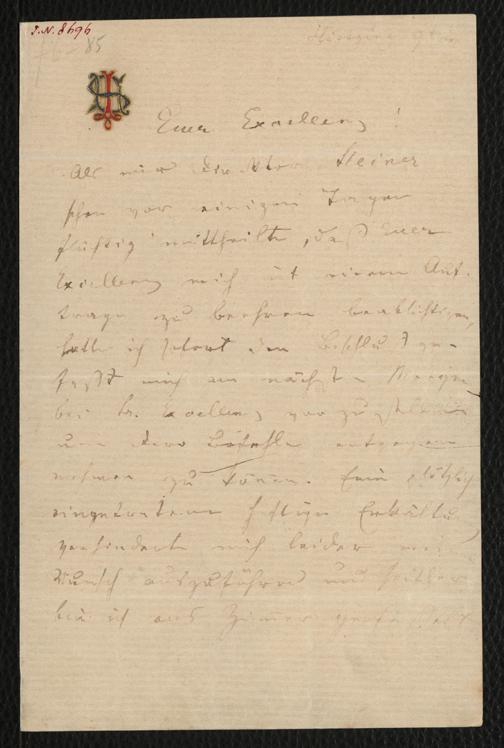 J.N. 8696
85
Hietzing
JS
Euer Excellenz!
Als mir Direktor Steiner
schon vor einigen Tagen
flüchtig mittheilte, daß Euer
Excellenz mich mit einem Auf-
trage zu beehren beabsichtigen,
hatte ich sofort den Beschluß ge-
faßt mich am nächsten Morgen
bei Er. Excellenz vorzustellen
um dero Befehle entgegen
nehmen zu können. Eine plötzlich
eingetretene heftige Erkältung
verhinderte mich leider meinen
Wunsch auszuführen und seither
bin ich ans Zimmer gefesselt